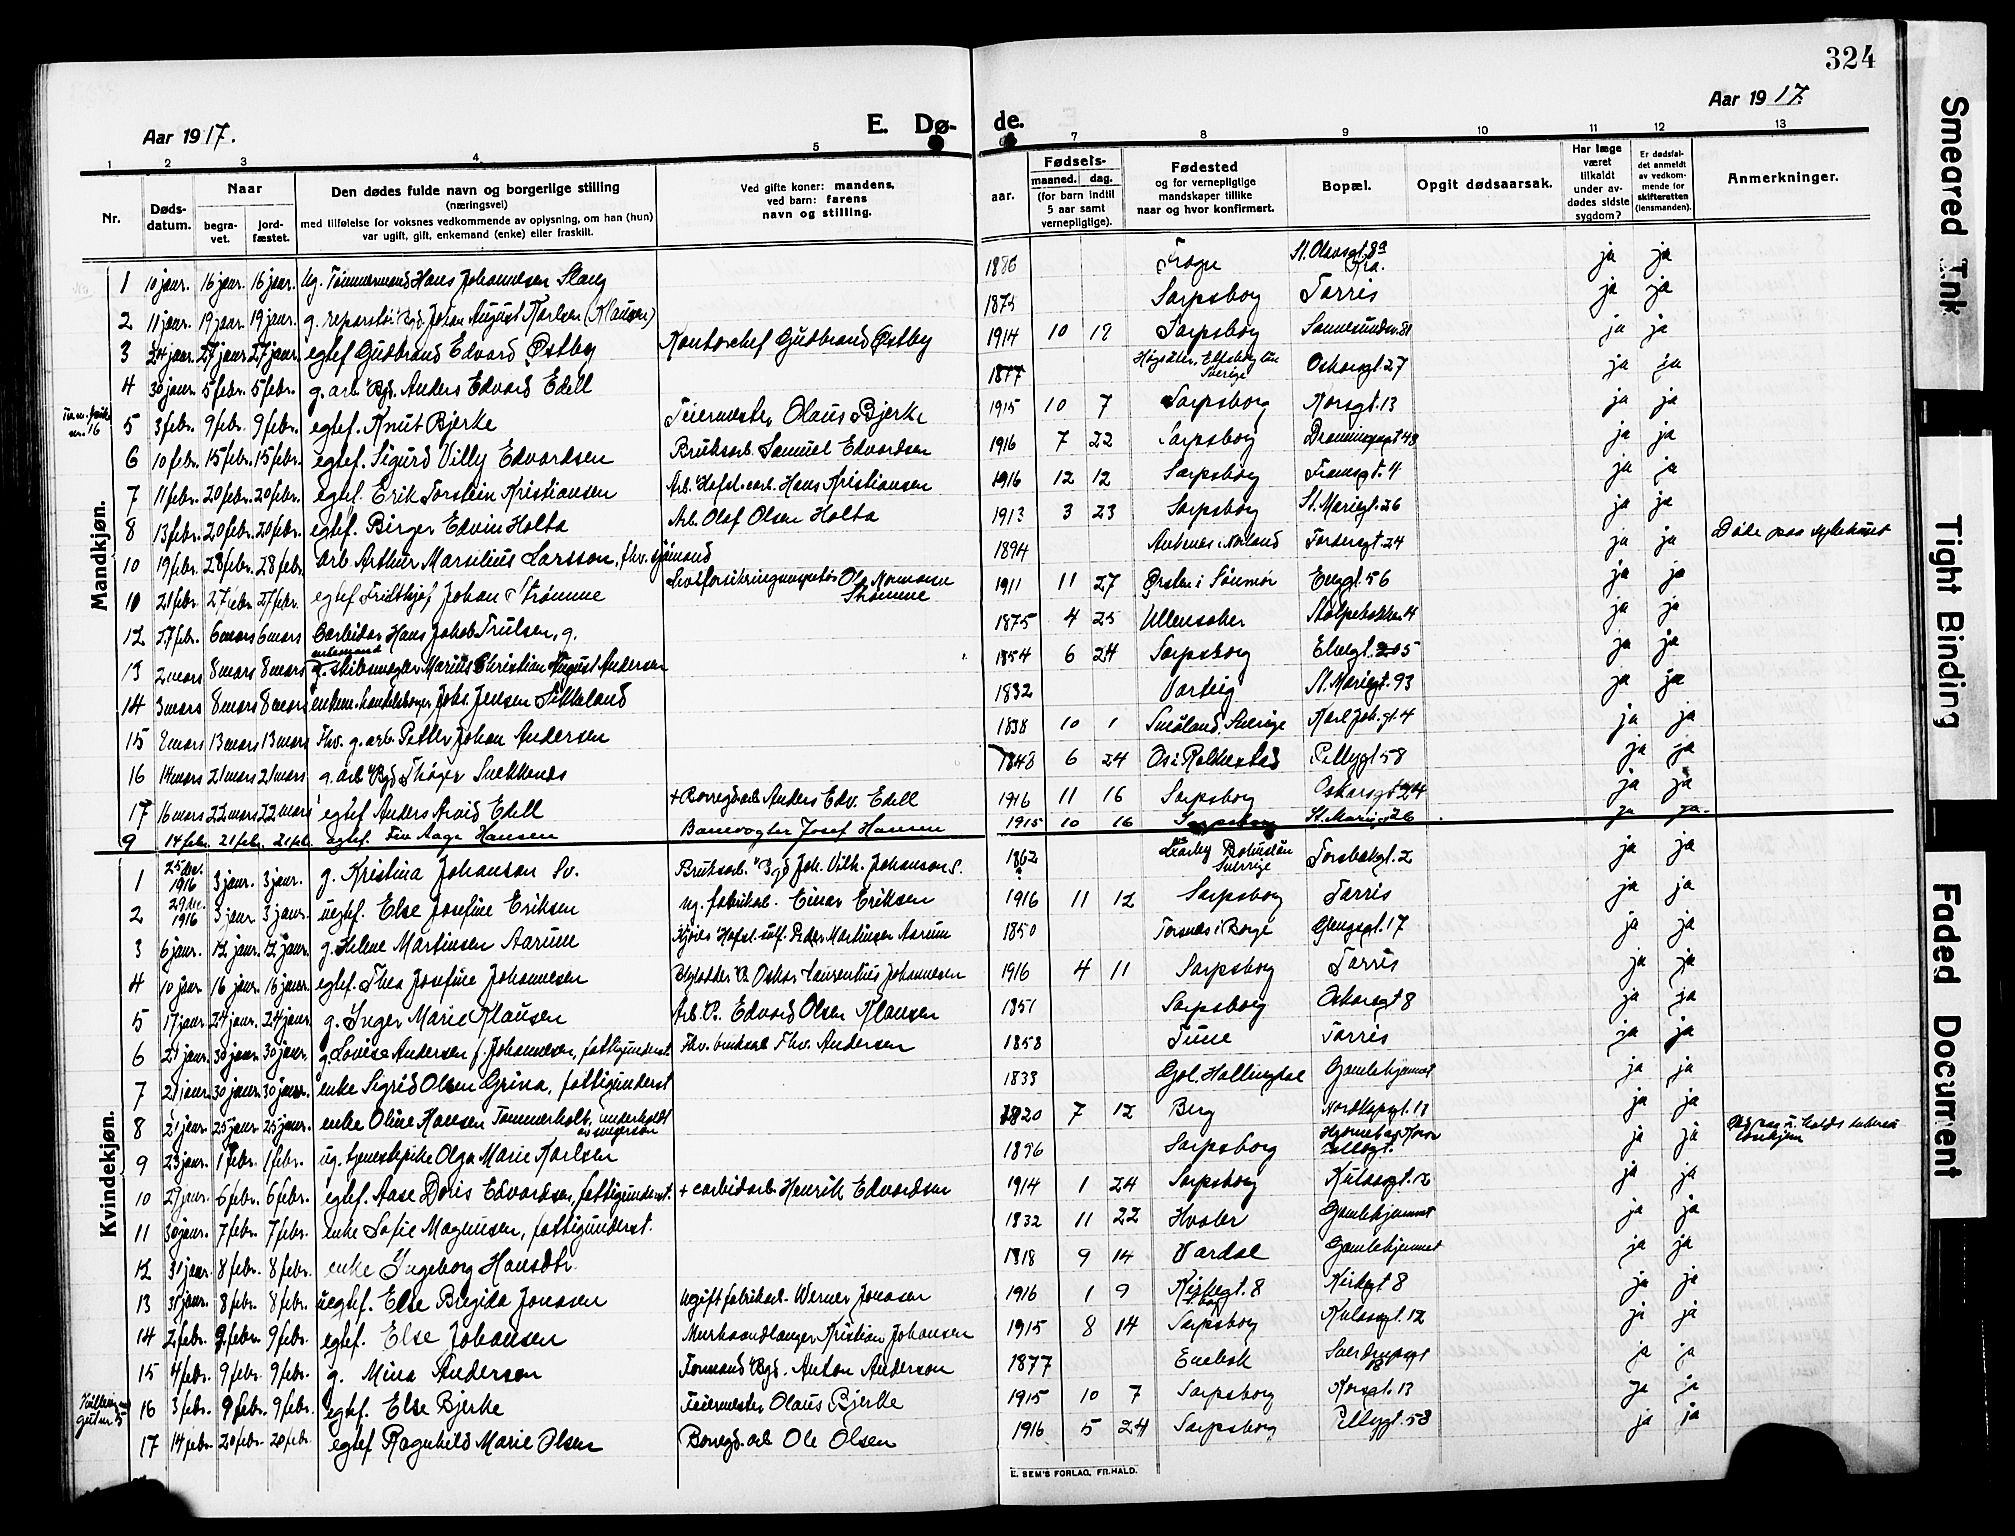 324
Aar 1917.
E. Dø-
de.
Aar 1917.
1 2 3 4 5 7 8 9 10 11 12 13
Nr.
Døds-
datum.
Naar
begra-
vet.
jord-
fæstet.
Den dødes fulde navn og borgerlige stilling
(næringsvei)
med tilføielse for voksnes vedkommende av oplysning, om han (hun)
var ugift, gift, enkemand (enke) eller fraskilt.
Ved gifte koner: mandens,
ved barn: farens
navn og stilling.
aar.
Fødsels-
maaned. dag.
(for barn indtil
5 aar samt
vernepligtige).
Fødested
og for vernepligtige
mandskaper tillike
naar og hvor konfirmert.
Bopæl.
Opgit dødsaarsak.
Har læge
været
tilkaldt
under av-
dødes sidste
sygdom?
Er dødsfal-
det anmeldt
av vedkom-
mende for
skifteretten
(lensmanden).
Anmerkninger.
Mandkjøn.
1 10 jaur. 16 jaur. 16 jaur. Ug. Tømmermand Hans Johannesen Slang 1886 Frogn St. Olavsgt. 8a Kra. ja ja
2 11 jaur. 19 jaur. 19 jaur. g. reparatør Bgd. Johan August Karlsen (Klausen) 1875 Sarpsborg Torris ja ja
3 24 jaur. 27 jaur. 27 jaur. egtef Gudbrand Edvard Østby Kontorchef Gudbrand Østby 1914 10 19 Sarpsborg Sannesundsv. 81 ja ja
4 30 jaur. 5 febr. 5 febr. g. arb. Bgd. Anders Edvard Edell 1877 Elfsborg län Sverige Oskarsgt. 27 ja ja
5 3 febr. 9 febr. 9 febr. egtef. Knut Bjerke Feiermester Olaus Bjerke 1915 10 7 Sarpsborg Korsgt. 13 ja ja
6 10 febr. 15 febr. 15 febr. egtef. Sigurd Villy Edvardsen Bruksarb. Samuel Edvardsen 1916 7 22 Sarpsborg Dronningensgt 48 ja ja
7 11 febr. 20 febr. 20 febr. egtef. Erik Torstein Kristiansen Arb. Hafsl. carb. Hans Kristiansen 1916 12 12 Sarpsborg Framsgt. 4 ja ja
8 13 febr. 20 febr. 20 febr. egtef. Birger Edvin Holta Arb. Olaf Olsen Holta 1913 3 23 Sarpsborg St. Mariegt. 26 ja ja
10 19 febr. 28 febr. 28 febr. arb. Arthur Marselius Larsson, fhv. sjømand 1894 Ankenes i Norland Torsbergt. 24 ja ja Døde paa sykehuset
11 21 febr. 27 febr. 27 febr. egtef Fridthjof Johan Strømme Livsforsikringsinspektør Ole Normann Strømme 1911 11 27 Ørsten i Sønmør Enggt. 56 ja ja
12 27 febr. 6 mars 6 mars Carbidar. Hans Jakob Trulsen, g. 1875 4 25 Ullensaker Stolpebakken 14 ja ja
enkemand
13 2 mars 8 mars 8 mars g. skibsmægler Marius Christian August Andersen 1854 6 24 Sarpsborg Elvegt. 5 ja ja
14 3 mars 8 mars 8 mars enkem. handelsborger Johs. Jensen Sikkeland 1832 Varteig St. Mariegt. 93 ja ja
15 8 mars 13 mars 13 mars Fhv. g. arb. Petter Johan Andersen 1838 10 1 Småland, Sverige Karl Joh. gt. 4 ja ja
16 14 mars 21 mars 21 mars g. arb. Bgd. Thøger Snekkenes 1848 6 24 Os i Rakkestad Pellygt 58 ja ja
17 16 mars 22 mars 22 mars egtef Anders Arvid Edell + Borregd. arb. Anders Edv. Edell 1916 11 16 Sarpsborg Oskarsgt 24 ja ja
9 14 febr. 21 febr. 21 febr. egtef. Finn Aage Hansen Banevogter Josef Hansen 1915 10 16 Sarpsborg St. Marieg. 26 ja ja
Kvindekjøn.
1 25 des. 1916 3 jaur. 3 jaur. g. Kristina Johanson Sv. Bruksarb. Bgd Joh. Vilh. Johanson S. 1862 Bohuslän Sverrige Torsbakgt. 2 ja ja
2 29 des. 1916 3 jaur. 3 jaur. uegtef. Else Josefine Eriksen ug. fabrikarb. Einar Eriksen 1916 11 12 Sarpsborg Torris ja ja
3 6 jaur. 12 jaur. 12 jaur. g. Helene Martinsen Aarum Hafsl. sulf. Peder Martinsen Aarum 1850 Torsnes i Borge Glengsgt. 17 ja ja
4 10 jaur 16 jaur. 16 jaur. egtef. Thea Josefine Johannesen Oskar Laurentius Johannesen 1916 4 11 Sarpsborg Torris ja ja
5 17 jaur. 24 jaur. 24 jaur. g. Inger Marie Klausen Arb. B. Edvard Olsen Klausen 1851 Sarpsborg Oskarsgt 8 ja ja
6 21 jaur. 30 jaur. 30 jaur. g. Lovise Andersen f. Johannesen, fattigunderst. Fhv. bruksarb. Thv. Andersen 1858 Tune Torris ja ja
7 21 jaur 30 jaur. 30 jaur. enke Sigrid Olsen Grina, fattigunderst 1833 Gol. Hallingdal Gamlehjemmet ja ja
8 21 jaur. 25 jaur. 25 jaur. enke Oline Hansen Tømmerholt, underholdt av svigersøn 1820 7 12 Berg Nordkapgt. 13 ja ja
9 23 jaur. 1 febr. 1 febr. ug. tjenestepike Olga Marie Karlsen 1896 Sarpsborg Hjørnet av Kors Pellygt. ja ja
10 27 jaur. 6 febr. 6 febr. egtef. Aase Doris Edvardsen, fattigunderst. + carbidarb. Henrik Edvardsen 1914 1 24 Sarpsborg Kulasgt. 12 ja ja
11 30 jaur. 7 febr. 7 febr. enke Sofie Magnusen, fattigunderst. 1832 11 22 Hvaler Gamlehjemmet ja ja
12 31 jaur. 8 febr. 8 febr. enke Ingeborg Hansdtr. 1818 9 14 Vardal Gamlehjemmet ja ja
13 31 jaur. 8 febr. 8 febr. uegtef. Else Bregida Jonasen Ugift fabrikarb. Werner Jonasen 1916 1 9 Kirkegt. 8 S.borg Kirkegt 8 ja ja
14 2 febr. 9 febr. 9 febr. egtef. Else Johansen Murhaandlanger Kristian Johansen 1915 8 14 Sarpsborg Kulasgt. 12 ja ja
15 4 febr. 9 febr. 9 febr. g. Mina Anderson Formand Bgd. Anton Anderson 1877 Enebak Sverdrupsgt 18 ja ja
16 3 febr. 9 febr. 9 febr. egtef. Else Bjerke Feiermester Olaus Bjerke 1915 10 7 Sarpsborg Korsgt. 13 ja ja
17 14 febr 20 febr. 20 febr. egtef Ragnhild Marie Olsen Borregd. arb Ole Olsen 1916 5 24 Sarpsborg Pellygt. 58 ja ja
E. SEM'S FORLAG, FR.HALD.
Smeared Ink
Tight Binding
Faded Document